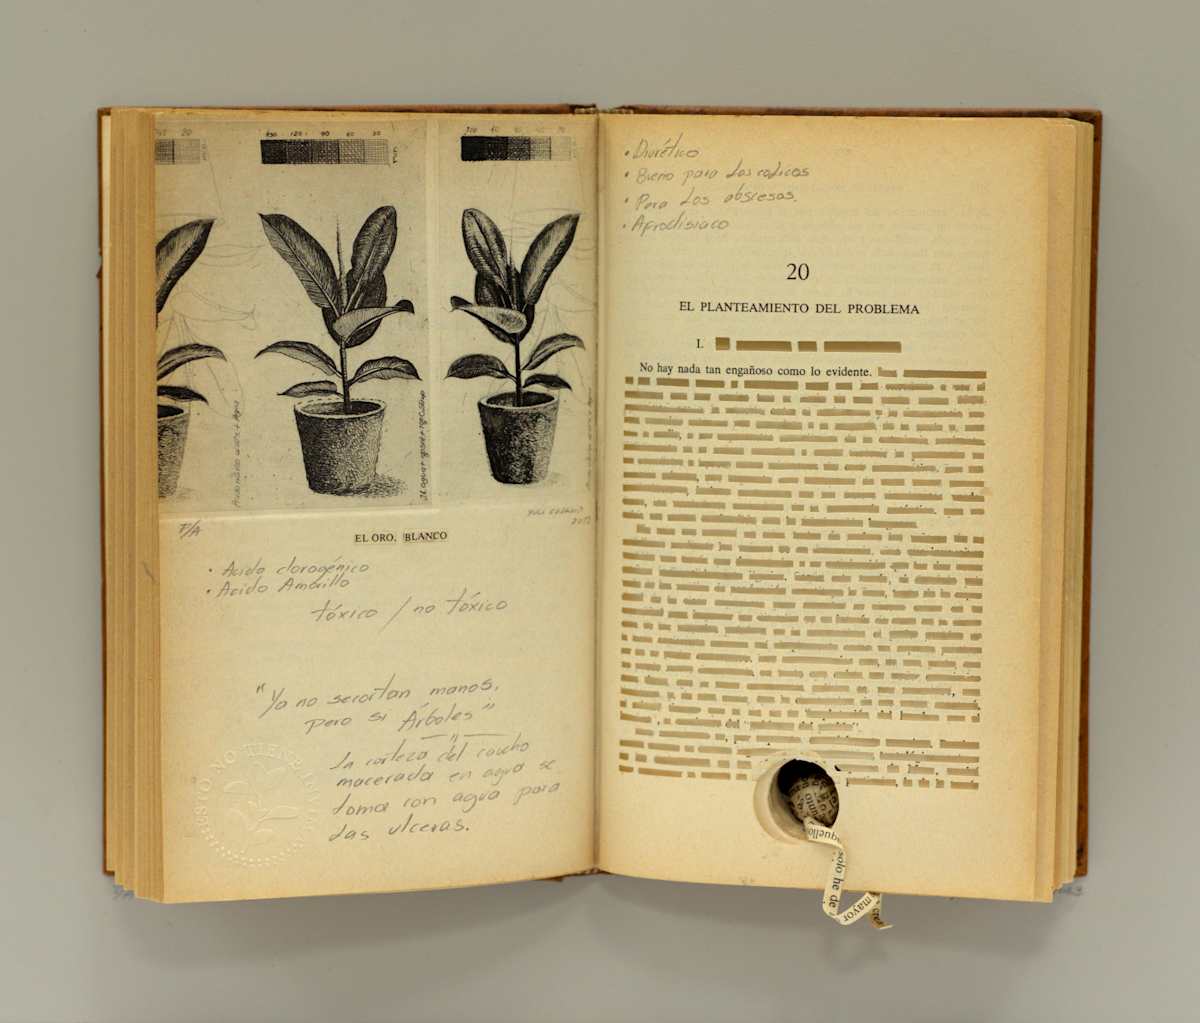 150 120 90 60 30
P/A
2012
EL ORO, BLANCO
• Acido clorogénico
• Acido Amarillo
tóxico / no tóxico
"Ya no se cortan manos,
pero si Árboles"
La corteza del caucho
macerada en agua se
toma con agua para
las ulceras.
ESTO NO TIENE
• Diurético
• Bueno para los colicos
• Para los abscesos.
• Afrodisiaco
20
EL PLANTEAMIENTO DEL PROBLEMA
I.
No hay nada tan engañoso como lo evidente.
aquello
solo he de
mayor